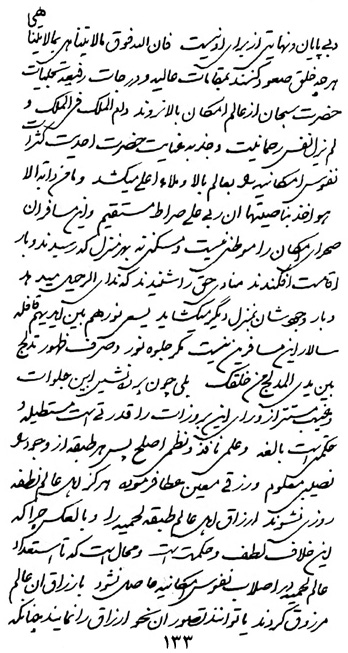 بی پایان و نهایتی از برای او نیست فان الله فوق مالایتناهی بمالایتناهی
هر چه خلق صعود کنند بمقامات عالیه و درجات رفیعه تجلیات
حضرت سبحان از عالم امکان بالاتر روند و له الملک فی الملک و
لم یزل نفس رحمانیت و جذبه عنایت حضرت احدیت
نفوس امکانیه بعالم بالا و ملاء اعلی میکشد و ما من دابة الا
هو اخذ بناصیتها ان ربی علی صراط مستقیم و این مسافران
صحرای امکان را موطنی نیست و مسکنی نه بهر منزل که رسیدند و بار
اقامت افکندند منادی حق را شنیدند که ندای الرحیل میدهد
و بار دیگر بمنزل دیگر میکشاید یسعی نورهم بین ایدیهم قافله
سالار این مسافرین نیست مگر جلوه نور و صرف ظهور تدلج
بین یدی المدلج من خلقک بلی چون پرده نشین این خلوات
و غیب مستتر از ورای این بروزات را قدرتی است مستطیله و
حکمتی است بالغه و علمی نافذ و نظمی اصلح پس هر طبقه از وجود
نصیبی معلوم و رزقی معین عطا فرموده هرگز اهل عالم نطفه
روزی نشوند ارزاق اهل عالم طبقه لحمیه را و بالعکس چرا که
این خلاف لطف و حکمت است و محال است که تا استعداد
عالم لحمیه در اصلاب نفوس امکانیه حاصل نشود بارزاق آن عالم
مرزوق گردند یا توانند تصور آن نحو ارزاق را نمایند چنانکه
١٣٣